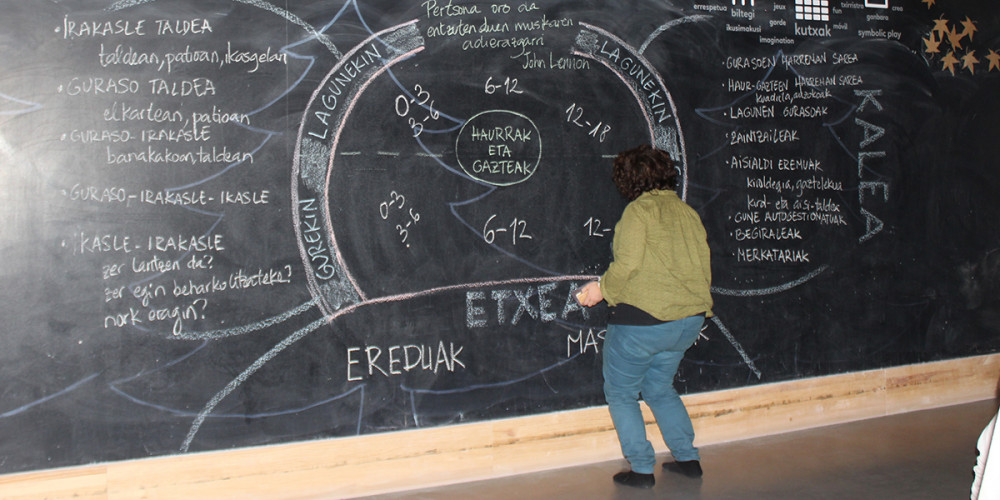 · IRAKASLE TALDEA
taldean, patioan, ikasgelan
· GURASO TALDEA
elkartean, patioan
· GURASO-IRAKASLE
banakakoan, taldean
· GURASO-IRAKASLE-IKASLE
· IKASLE-IRAKASLE
zer lantzen da?
zer egin beharko litzateke?
nork eragin?
Pertsona oro da
entzuten duen musikaren
adierazgarri
John Lennon
LAGUNEKIN
GUREKIN
LAGUNEKIN
0-3
3-6
6-12
12-18
HAURRAK
ETA
GAZTEAK
0-3
3-6
?
6-12
12-
ETXEA
EREDUAK
errespetua
biltegi
ikusimokusi
jeux
gorde
imagination
kutxak
fun
móvil
txirristra
symbolic play
ganbara
crea
· GURASOEN HARREMAN SAREA
· HAUR-GAZTEEN HARREMAN SAREA
kuadrila, auzokoak
· LAGUNEN GURASOAK
· ZAINTZAILEAK
· AISIALDI EREMUAK
kiroldegia, gaztelekua
kirol- eta aisi-taldea
· GUNE AUTOGESTIONATUAK
· BEGIRALEAK
· MERKATARIAK
KALEA